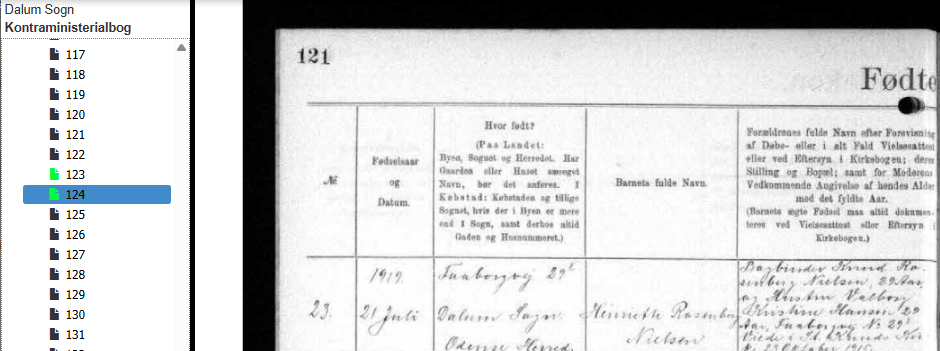 Dalum Sogn
Kontraministerialbog
117
118
119
120
121
122
123
124
125
126
127
128
129
130
131
121
Fødte
№
Fødselsaar
og
Datum.
Hvor født?
(Paa Landet:
Byen, Sognet og Herredet. Har
Gaarden eller Huset særeget
Navn, bør det anføres. I
Købstad: Købstaden og tillige
Sognet, hvis der i Byen er mere
end 1 Sogn, samt derhos altid
Gaden og Husnummeret.)
Barnets fulde Navn.
Forældrenes fulde Navn efter Forevisning
af Døbe- eller i alt Fald Vielsesattest
eller ved Eftersyn i Kirkebogen; deres
Stilling og Bopæl; samt for Moderens
Vedkommende Angivelse af hendes Alder
med det fyldte Aar.
(Barnets ægte Fødsel maa altid dokumen-
teres ved Vielsesattest eller Eftersyn i
Kirkebogen.)
23.
1919.
21 Juli
Faaborgvej 29
Dalum Sogn
Odense Herred
Henriette Rosenberg
Nielsen
Bogbinder Knud Ro-
senberg Nielsen, 29 Aar,
og Hustru Valborg
Kristine Hansen 29
Aar, Faaborgvej No 29
Viede i St. Knuds Kir